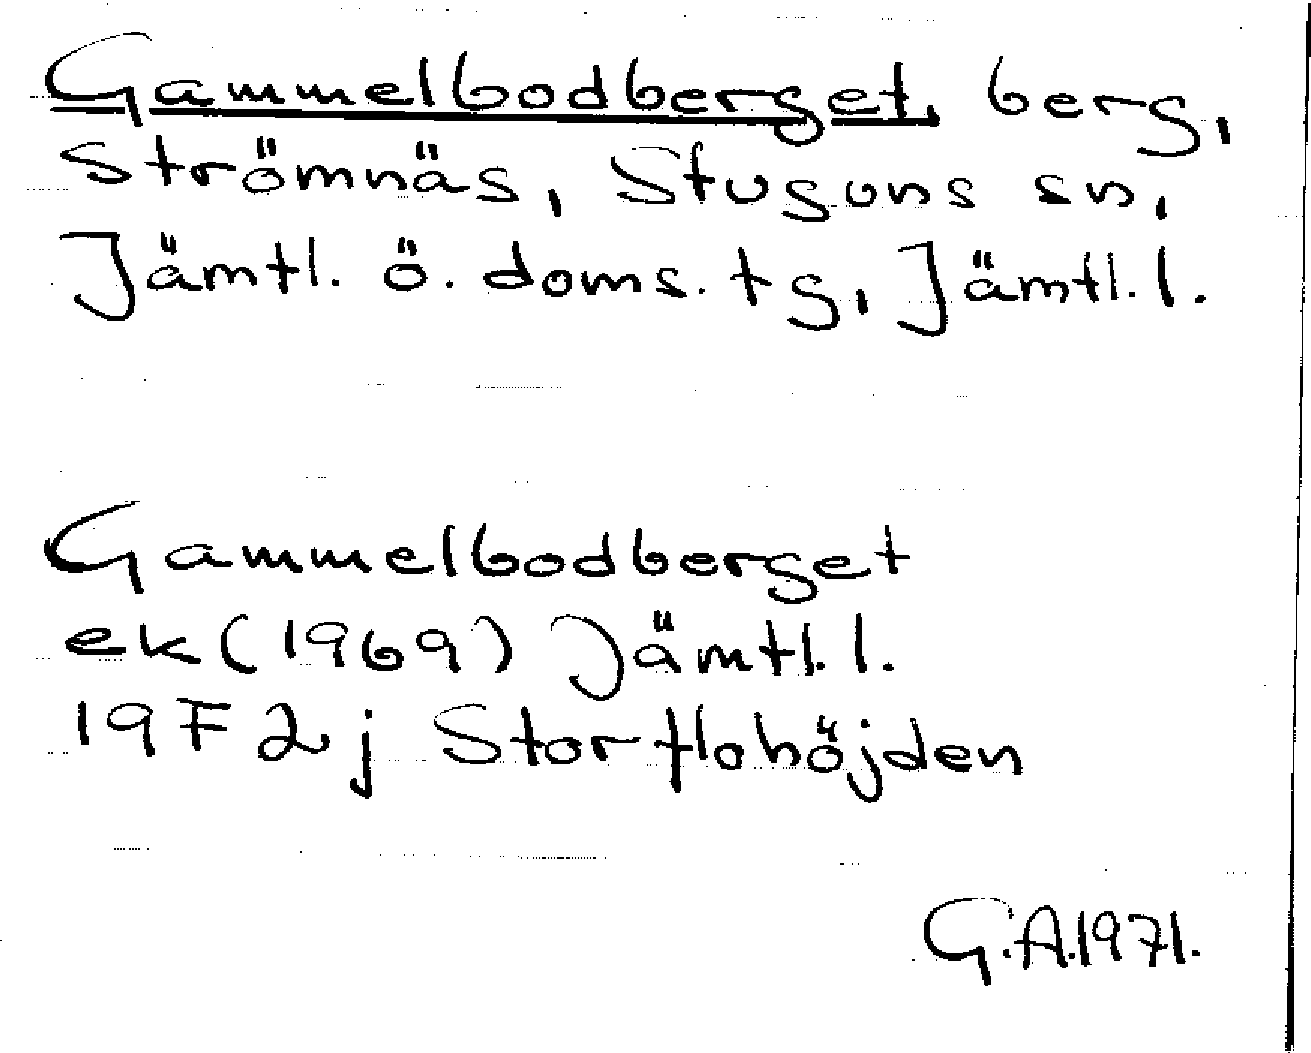 Gammelbodberget, berg,
Strömnäs, Stuguns sn,
Jämtl. ö. doms. tg, Jämtl. l.
Gammelbodberget
ek (1969) Jämtl. l.
19F 2j Storflohöjden
G.A.1971.